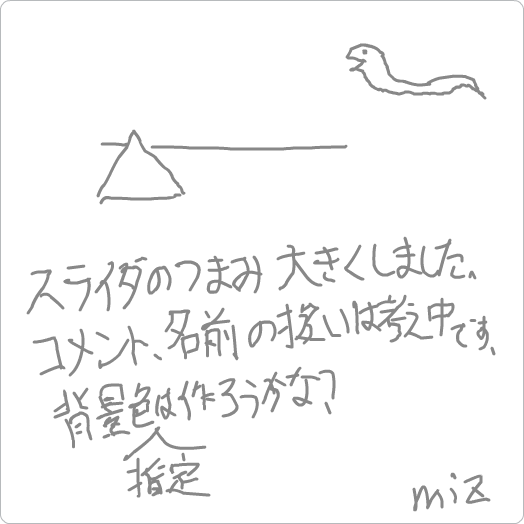 スライダのつまみ 大きくしました。
コメント、名前の扱いは考え中です、
背景色は作ろうかな?
指定
miz